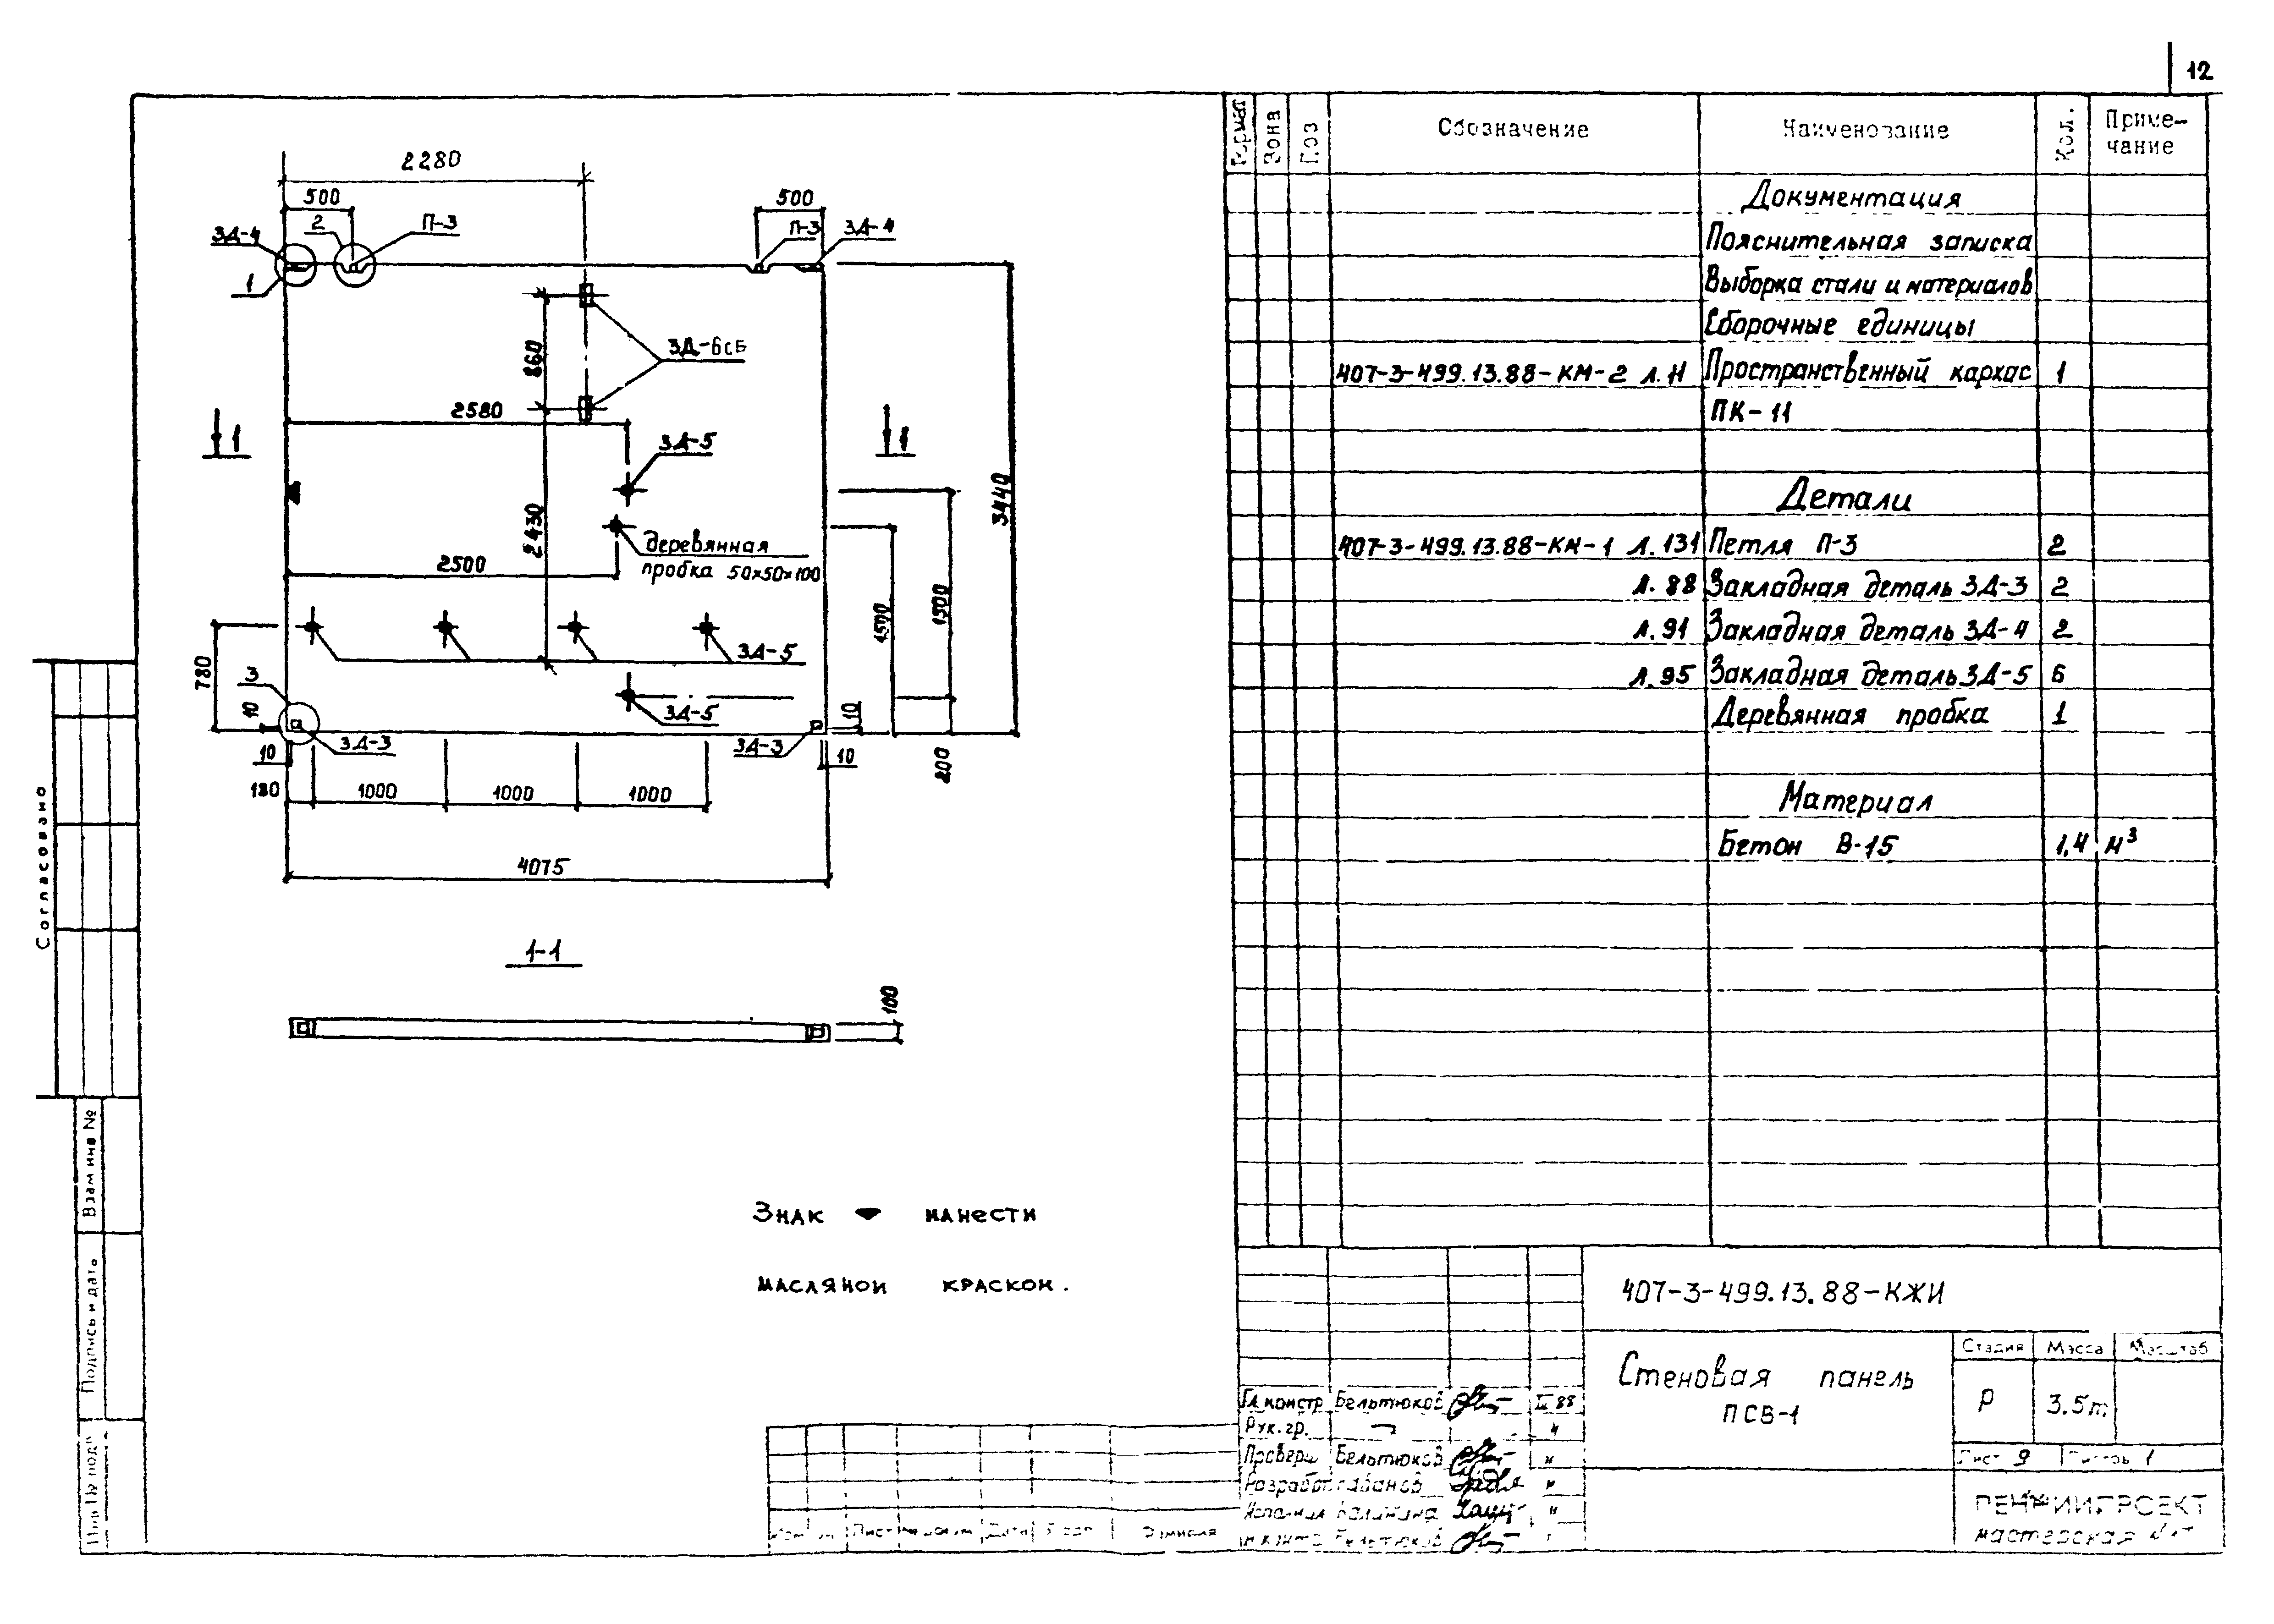 12
2280
500
500
2
П-3
П-3
ЗД-4
ЗД-4
1
860
ЗД-6сб
2580
1
1
ЗД-5
3440
2430
деревянная
пробка 50×50×100
2500
1500
780
ЗД-5
3
10
ЗД-5
10
ЗД-3
ЗД-3
10
10
200
180
1000
1000
1000
4075
1-1
100
Знак нанести
масляной краской.
Согласовано
Взам инв №
Подпись и дата
Формат
Зона
Поз
Обозначение
Наименование
Кол.
Приме-
чание
Документация
Пояснительная записка
Выборка стали и материалов
Сборочные единицы
407-3-499.13.88-КМ-2 Л.11 Пространственный каркас 1
ПК-11
Детали
407-3-499.13.88-КМ-1 Л.131 Петля П-3 2
Л.88 Закладная деталь ЗД-3 2
Л.91 Закладная деталь ЗД-4 2
Л.95 Закладная деталь ЗД-5 6
Деревянная пробка 1
Материал
Бетон В-15 1,4 м³
407-3-499.13.88-КЖИ
Стеновая панель
ПСВ-1
Стадия Масса Масштаб
Р 3.5т
Лист 9 Листов 1
Гл констр Бельтюков III 88
Рук.гр.
Провери Бельтюков
Н контр Бельтюков
мастерская
Лист Дата Фамилия